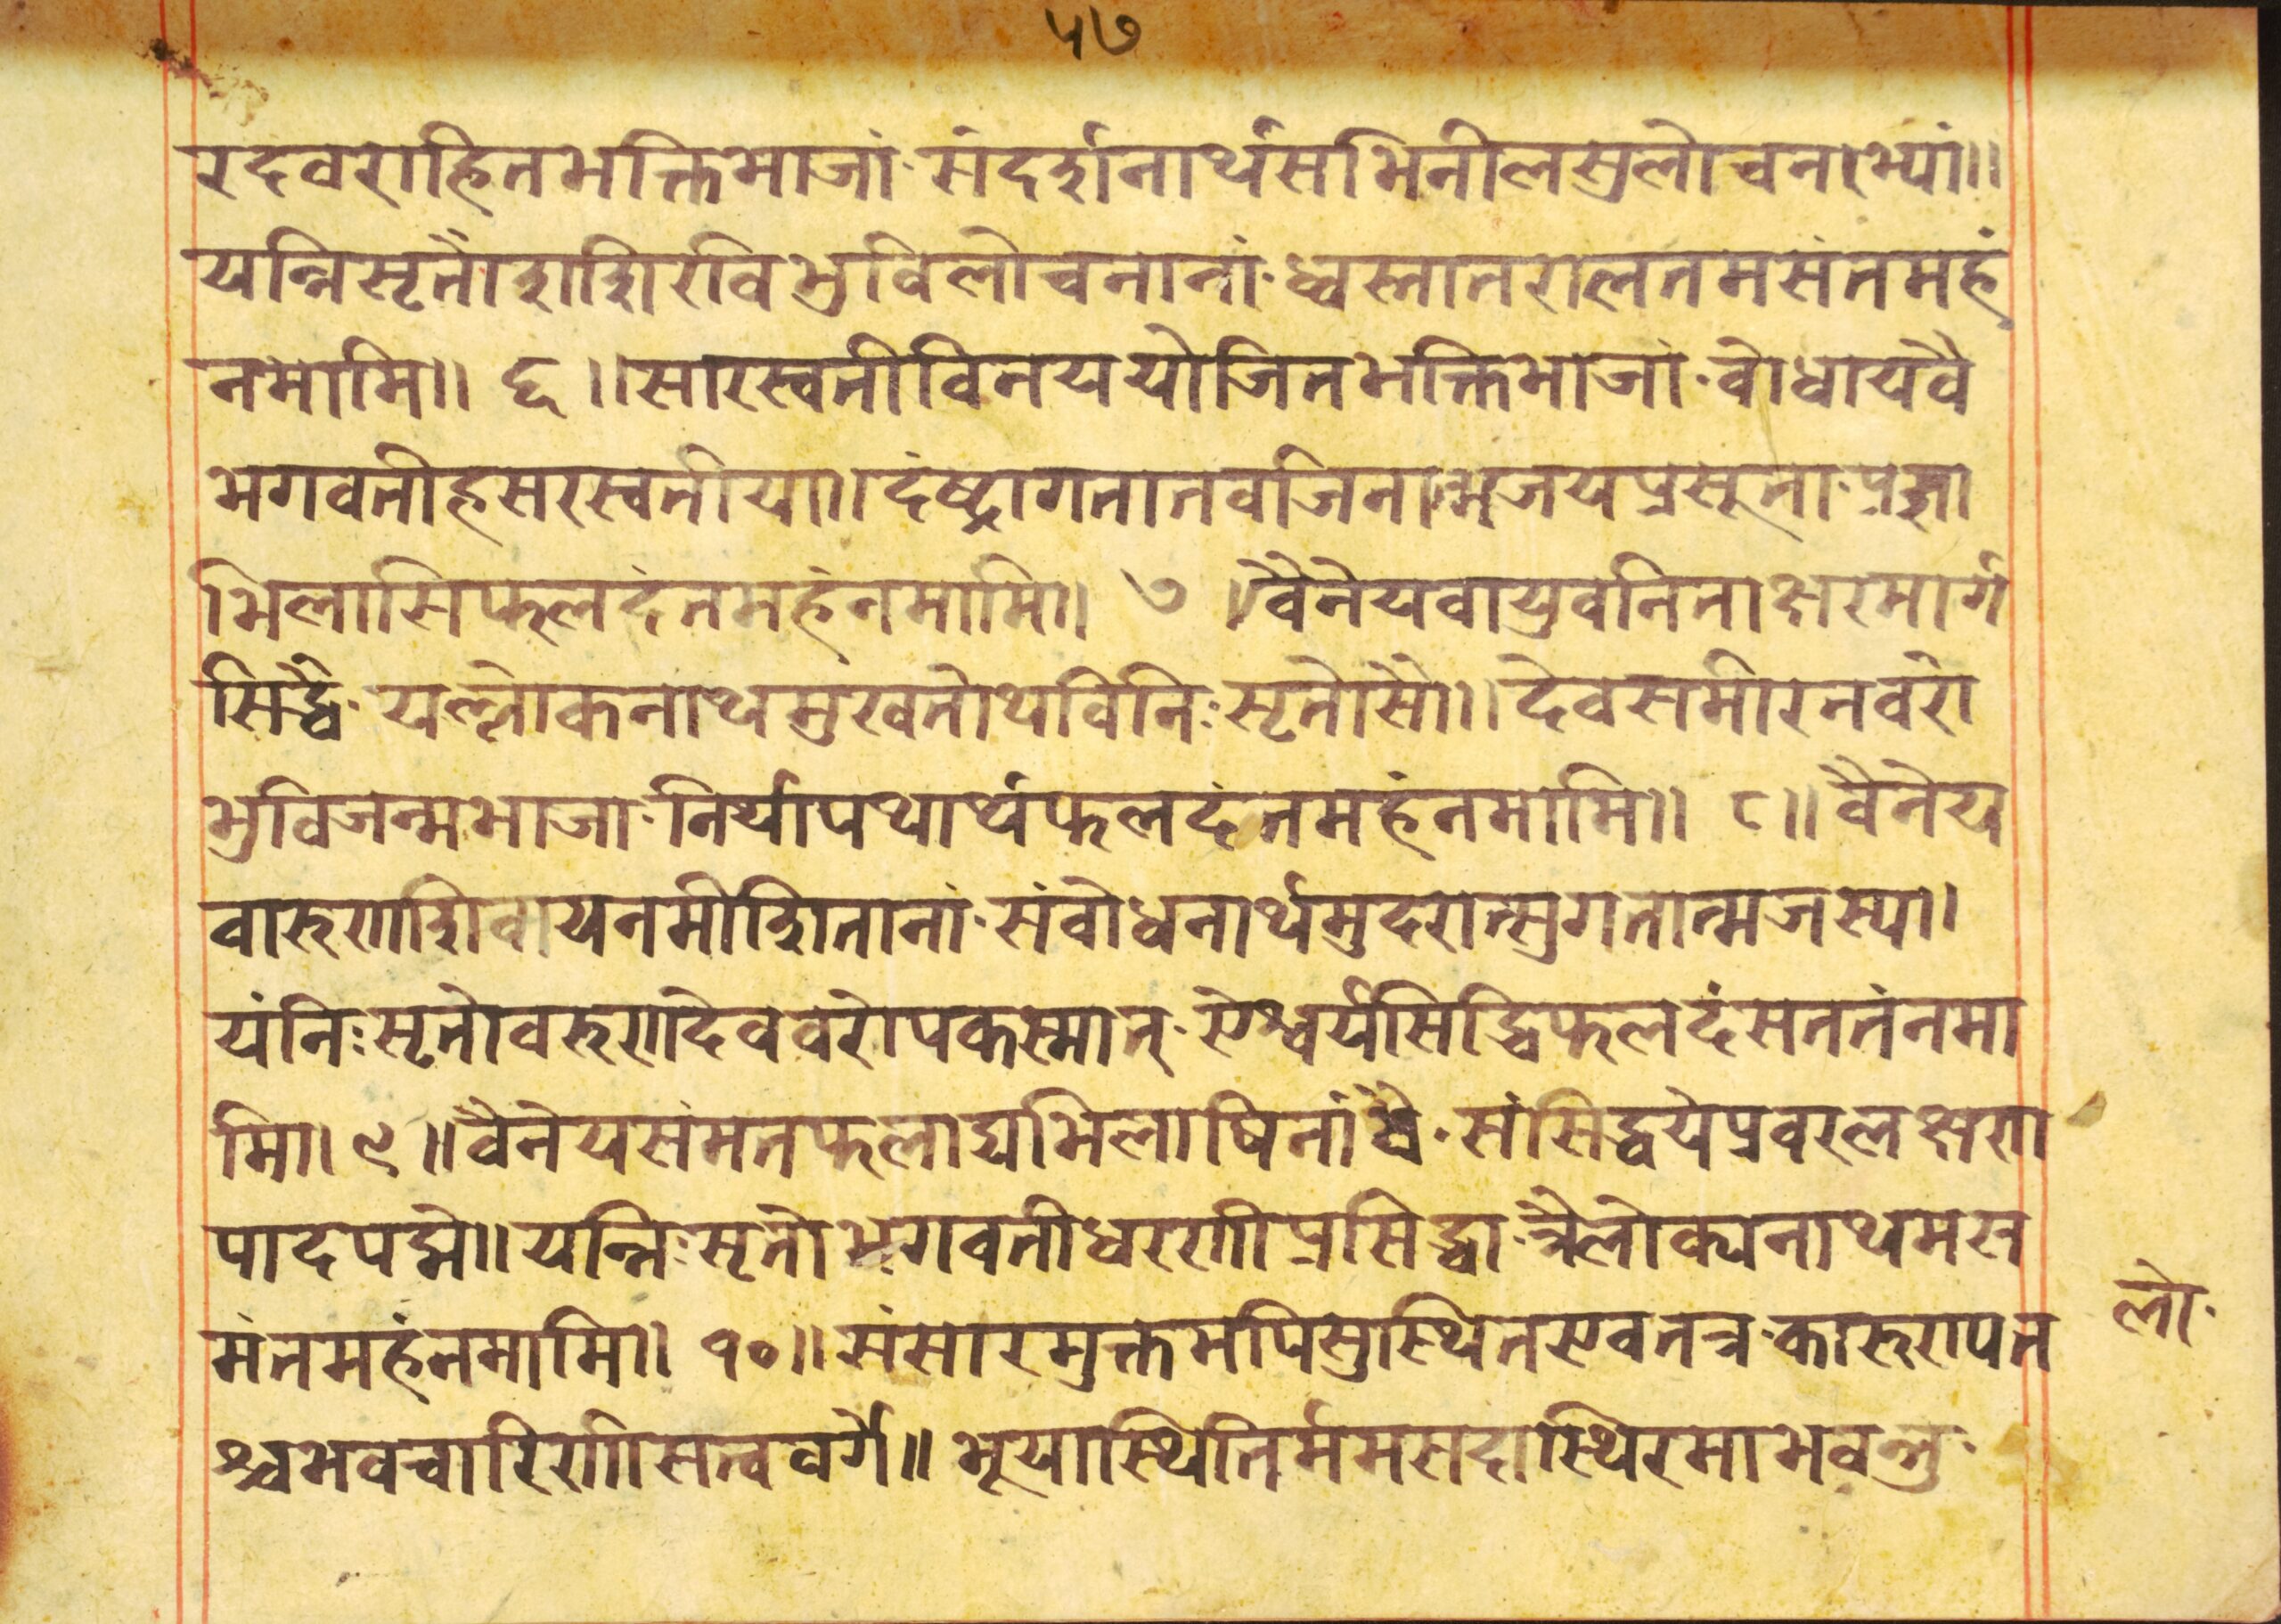 ५७
रदवराह्नितभक्तिभाजां·संदर्शनार्थसभिनीलसुलोचनाभ्यां॥
यन्निसृतौशशिरविभुविलोचनानां·ध्वस्तातरालतमसंतमहं
नमामि॥ ६ ॥सारस्वतीविनययोजितभक्तिभाजां·वोधायवै
भगवतीहसरस्वतीया॥दंष्ट्रागतातवजिनात्मजयप्रसूता·प्रज्ञा
भिलासिफलदंतमहंनमामि॥ ७ ॥वैनेयवायुवनिताक्षरमार्ग
सिद्धै·यल्लोकनाथमुखतोथविनिःसृतोसौ॥देवसमीरनवरो
भुविजन्मभाजा·निर्यापथार्थफलदंतमहंनमामि॥ ८॥वैनेय
वारुणशिवायनमीशितानां·संवोधनार्थमुदरात्सुगतात्मजस्य।
यंनिःसृतोवरुणदेववरोपकस्मात्·ऐश्वर्यसिद्धिफलदंसततंनमा
मि।९॥वैनेयसंमतफलाद्यभिलाषिनांवै·संसिद्धयेप्रवरलक्षण
पादपद्मे॥यन्निःसृतोभगवतीधरणीप्रसिद्धा·त्रैलोक्यनाथमस
मंतमहंनमामि॥ १०॥संसारमुक्तमपिसुस्थितएवतत्र·कारुणपत
श्चभवचारिणीसत्ववर्गे॥भूयास्थितिर्ममसदास्थिरमाभवन्तु·
लो·